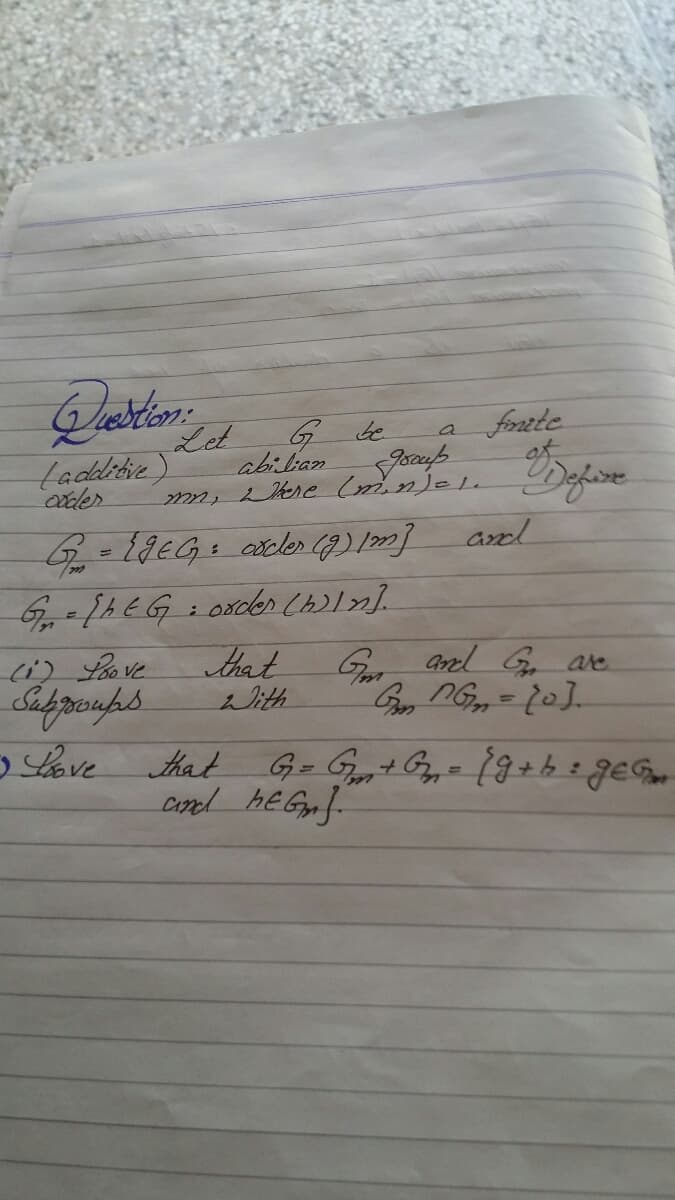 Question:
Let G be a finite
(additive) abilian group of
order mn, Where (m,n)=1. Define
Gm = {g∈G : order(g)|m} and
Gn = {h∈G : order(h)|n}.
(i) Prove that Gm and Gn are
Subgroups With Gm ∩ Gn = {0}.
) Prove that G = Gm + Gn = {g+h : g∈Gm
and h∈Gn}.